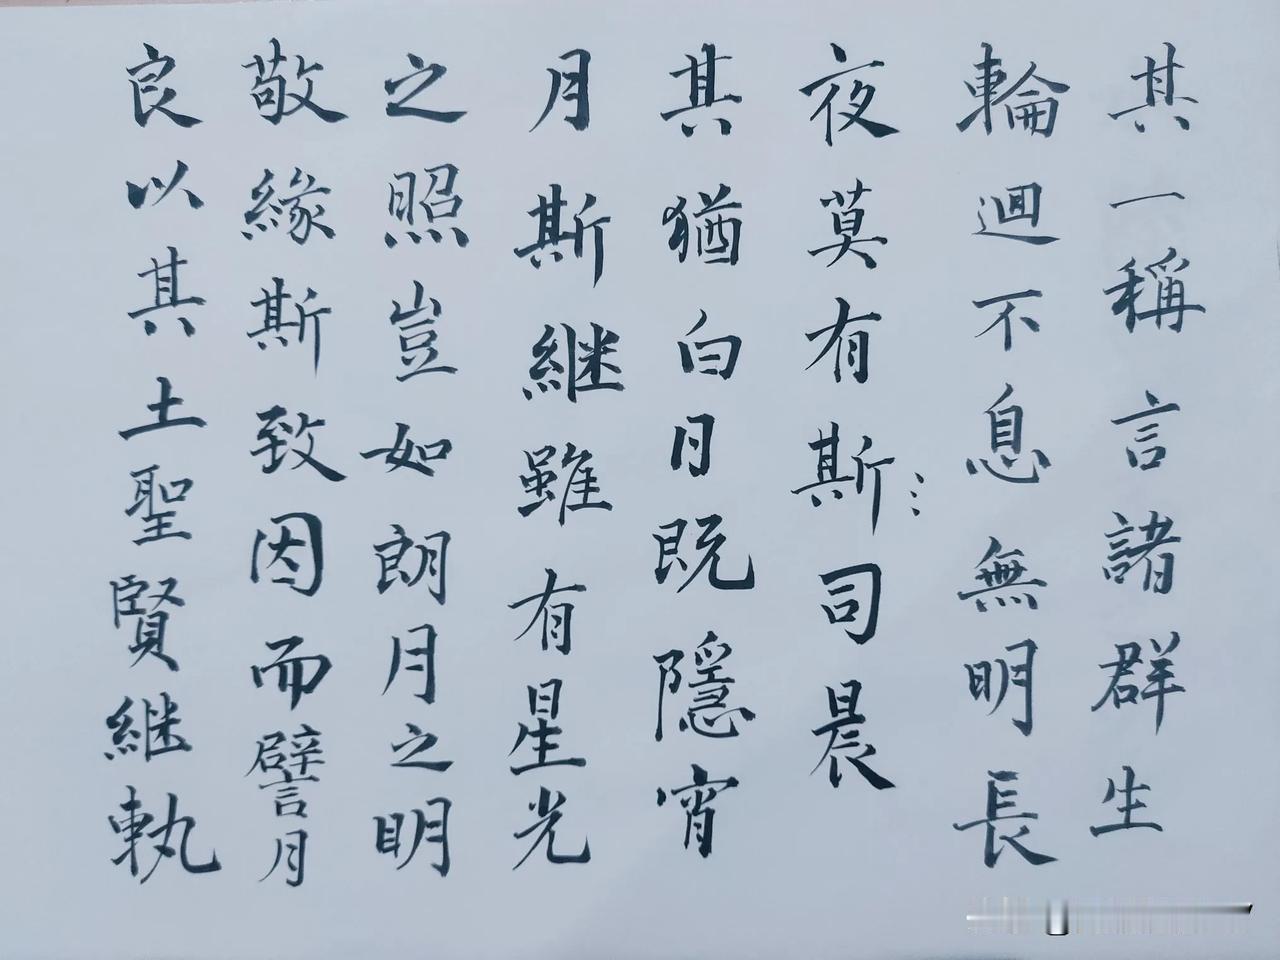 其一稱言諸群生
輪迴不息無明長
夜莫有斯:司晨
其猶白日既隱宵
月斯継雖有星光
之照豈如朗月之明
敬緣斯致因而譬月
良以其土聖賢継軌